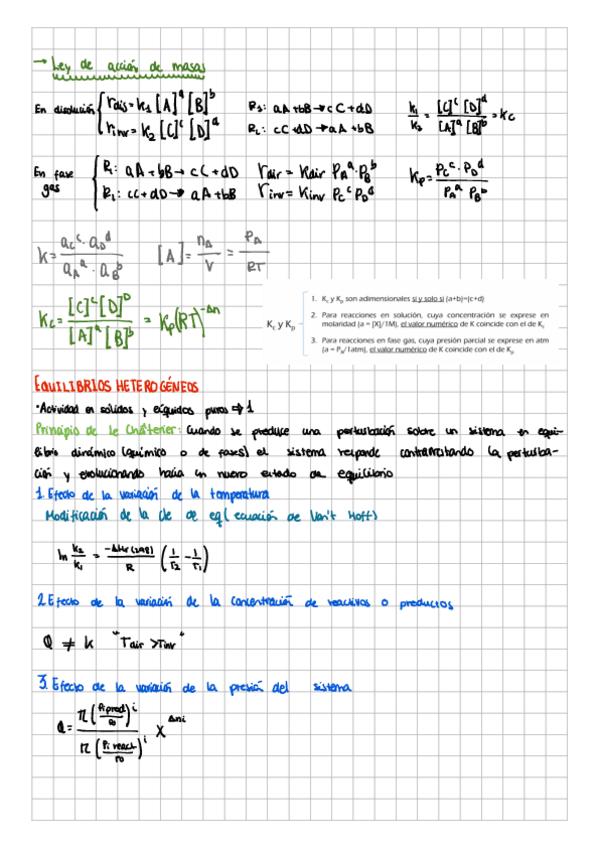 → Ley de acción de masas
En disolución { r dis = k1 [A]^a [B]^b
r inv = k2 [C]^c [D]^d
R1: aA+bB→cC+dD
R2: cC+dD→aA+bB
k1/k2 = [C]^c [D]^d / [A]^a [B]^b = kc
En fase gas { R1: aA+bB→cC+dD
R1: cC+dD→aA+bB
r dir = k dir PA^a·PB^b
r inv = k inv PC^c PD^d
kp = PC^c·PD^d / PA^a PB^b
k = aC^c·aD^d / aA^a·aB^b
[A] = nA/V = PA/RT
Kc = [C]^c [D]^D / [A]^a [B]^b = Kp(RT)^-Δn
Kc y Kp
1. Kc y Kp son adimensionales si y solo si (a+b)=(c+d)
2. Para reacciones en solución, cuya concentración se exprese en molaridad (a = [X]/1M), el valor numérico de K coincide con el de Kc
3. Para reacciones en fase gas, cuya presión parcial se exprese en atm (a = Px/1atm), el valor numérico de K coincide con el de Kp
EQUILIBRIOS HETEROGÉNEOS
·Actividad en solidos y liquidos puros ⇒ 1
Principio de le Châtelier: Cuando se produce una perturbación sobre un sistema en equi-
librio dinámico (químico o de fases) el sistema responde contrarrotando la perturba-
ción y evolucionando hacia un nuevo estado de equilibrio
1. Efecto de la variación de la temperatura
Modificación de la cte de eq( ecuación de Van't Hoff)
ln k2/k1 = -ΔHr(298)/R (1/T2 - 1/T1)
2. Efecto de la variación de la concentración de reactivos o productos
Q ≠ k "r dir > r inv"
3. Efecto de la variación de la presión del sistema
Q = π(Pi prod/P0)^i / π(Pi react/P0)^i X^Δni